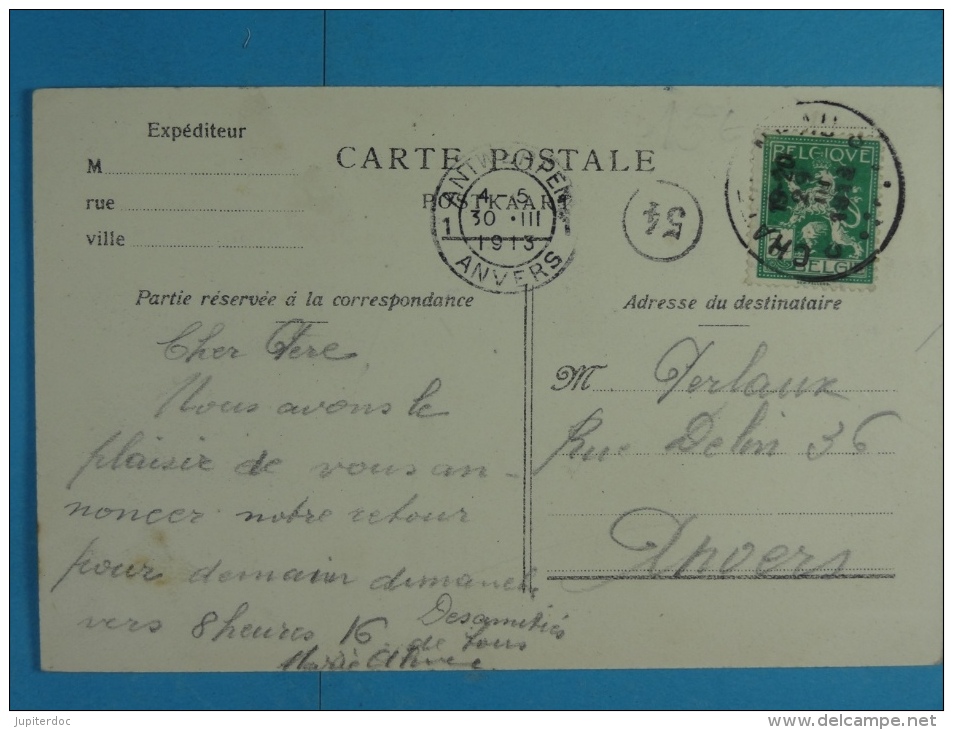 Expéditeur
M
rue
ville
CARTE POSTALE
POSTKAART
ANTWERPEN
1
4-5
30 III
1913
ANVERS
54
BELGIQUE
BELGIË
Partie réservée á la correspondance
Adresse du destinataire
Cher Père
Nous avons le
plaisir de vous an-
noncer notre retour
pour demain dimanche
vers 8 heures 16
Des amitiés
de tous
M. Verlaux
Rue Delin 36
Anvers
Jupiterdoc
www.delcampe.net